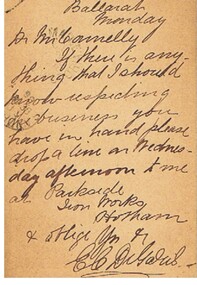 Ballarat
Monday
Dr Mr Connelly
If there is any-
thing that I should
know respecting
the business you
have in hand please
drop a line on Wednes-
day afternoon to me
at Parkside
Iron Works
Hotham
& oblige Yrs &
E C De